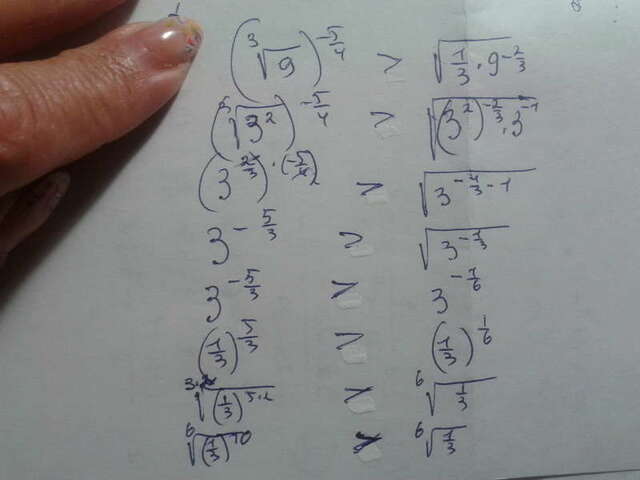 (∛9)^(-5/4) > √(1/3 · 9^(-2/3))
(∛(3²))^(-5/4) > √((3²)^(-2/3) · 3^(-1))
(3^(2/3))^(·(-5/4)) > √(3^(-4/3 - 1))
3^(-5/3) > √(3^(-1/3))
3^(-5/3) > 3^(-1/6)
(1/3)^(5/3) > (1/3)^(1/6)
3·2√((1/3)^(5·2)) > 6√(1/3)
6√((1/3)^10) > 6√(1/3)